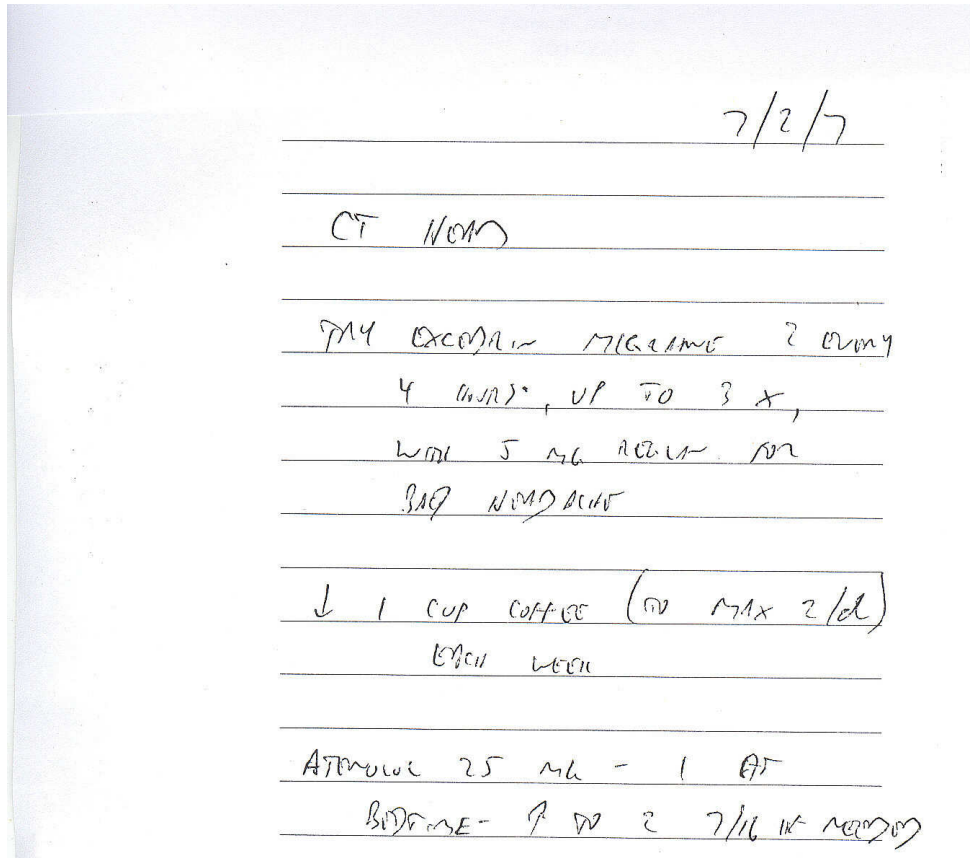 7/2/7
CT HEAD
TRY EXCEDRIN MIGRAINE 2 EVERY
4 HOURS, UP TO 3 X,
WITH 5 MG REGLAN FOR
BAD HEADACHE
↓ 1 CUP COFFEE (TO MAX 2/d)
EACH WEEK
ATENOLOL 25 MG - 1 AT
BEDTIME - ↑ TO 2 7/16 IF NEEDED